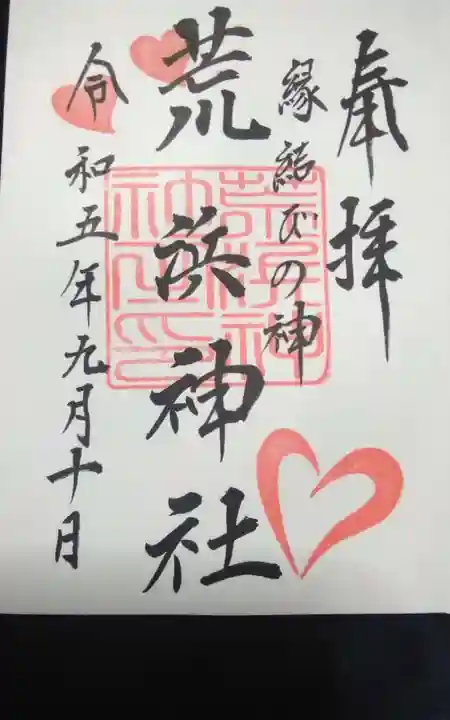 奉拝
縁結びの神
荒浜神社
令和五年九月十日